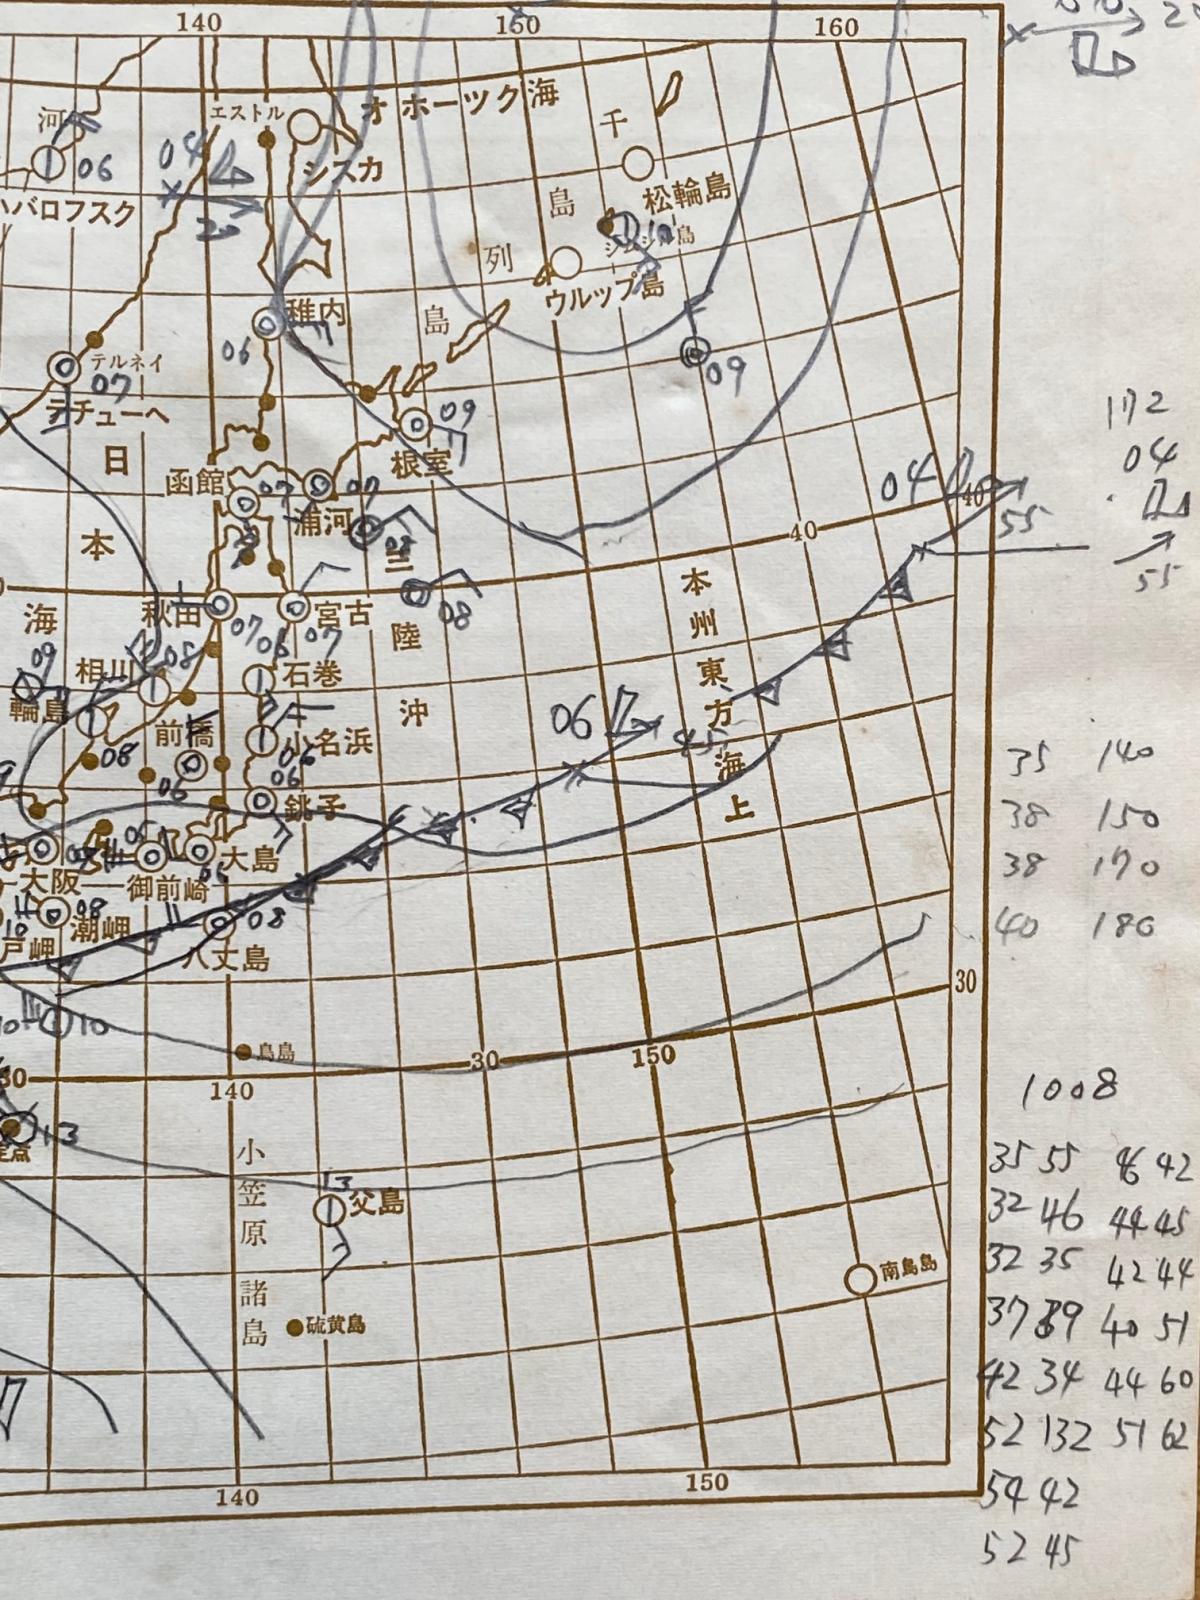 140
150
160
河
06
ハバロフスク
エストル
オホーツク海
シスカ
04
20
千
島
列
島
松輪島
シムシル島
ウルップ島
稚内
06
09
テルネイ
07
テチューヘ
09
根室
172
04
55
日
本
海
函館
07
浦河
07
08
04
40
55
40
三
陸
沖
08
秋田
07
宮古
07
06
石巻
本
州
東
方
海
上
09
輪島
相川
08
08
前橋
06
小名浜
06
06
銚子
06
45
35 140
38 150
38 170
40 180
大島
06
大阪
御前崎
08
潮岬
戸岬
10
08
八丈島
10
30
鳥島
30
150
30
140
1008
13
定点
小
笠
原
諸
島
13
父島
硫黄島
南鳥島
35 55 46 42
32 46 44 45
32 35 42 44
37 39 40 51
42 34 44 60
52 132 51 62
54 42
52 45
140
150